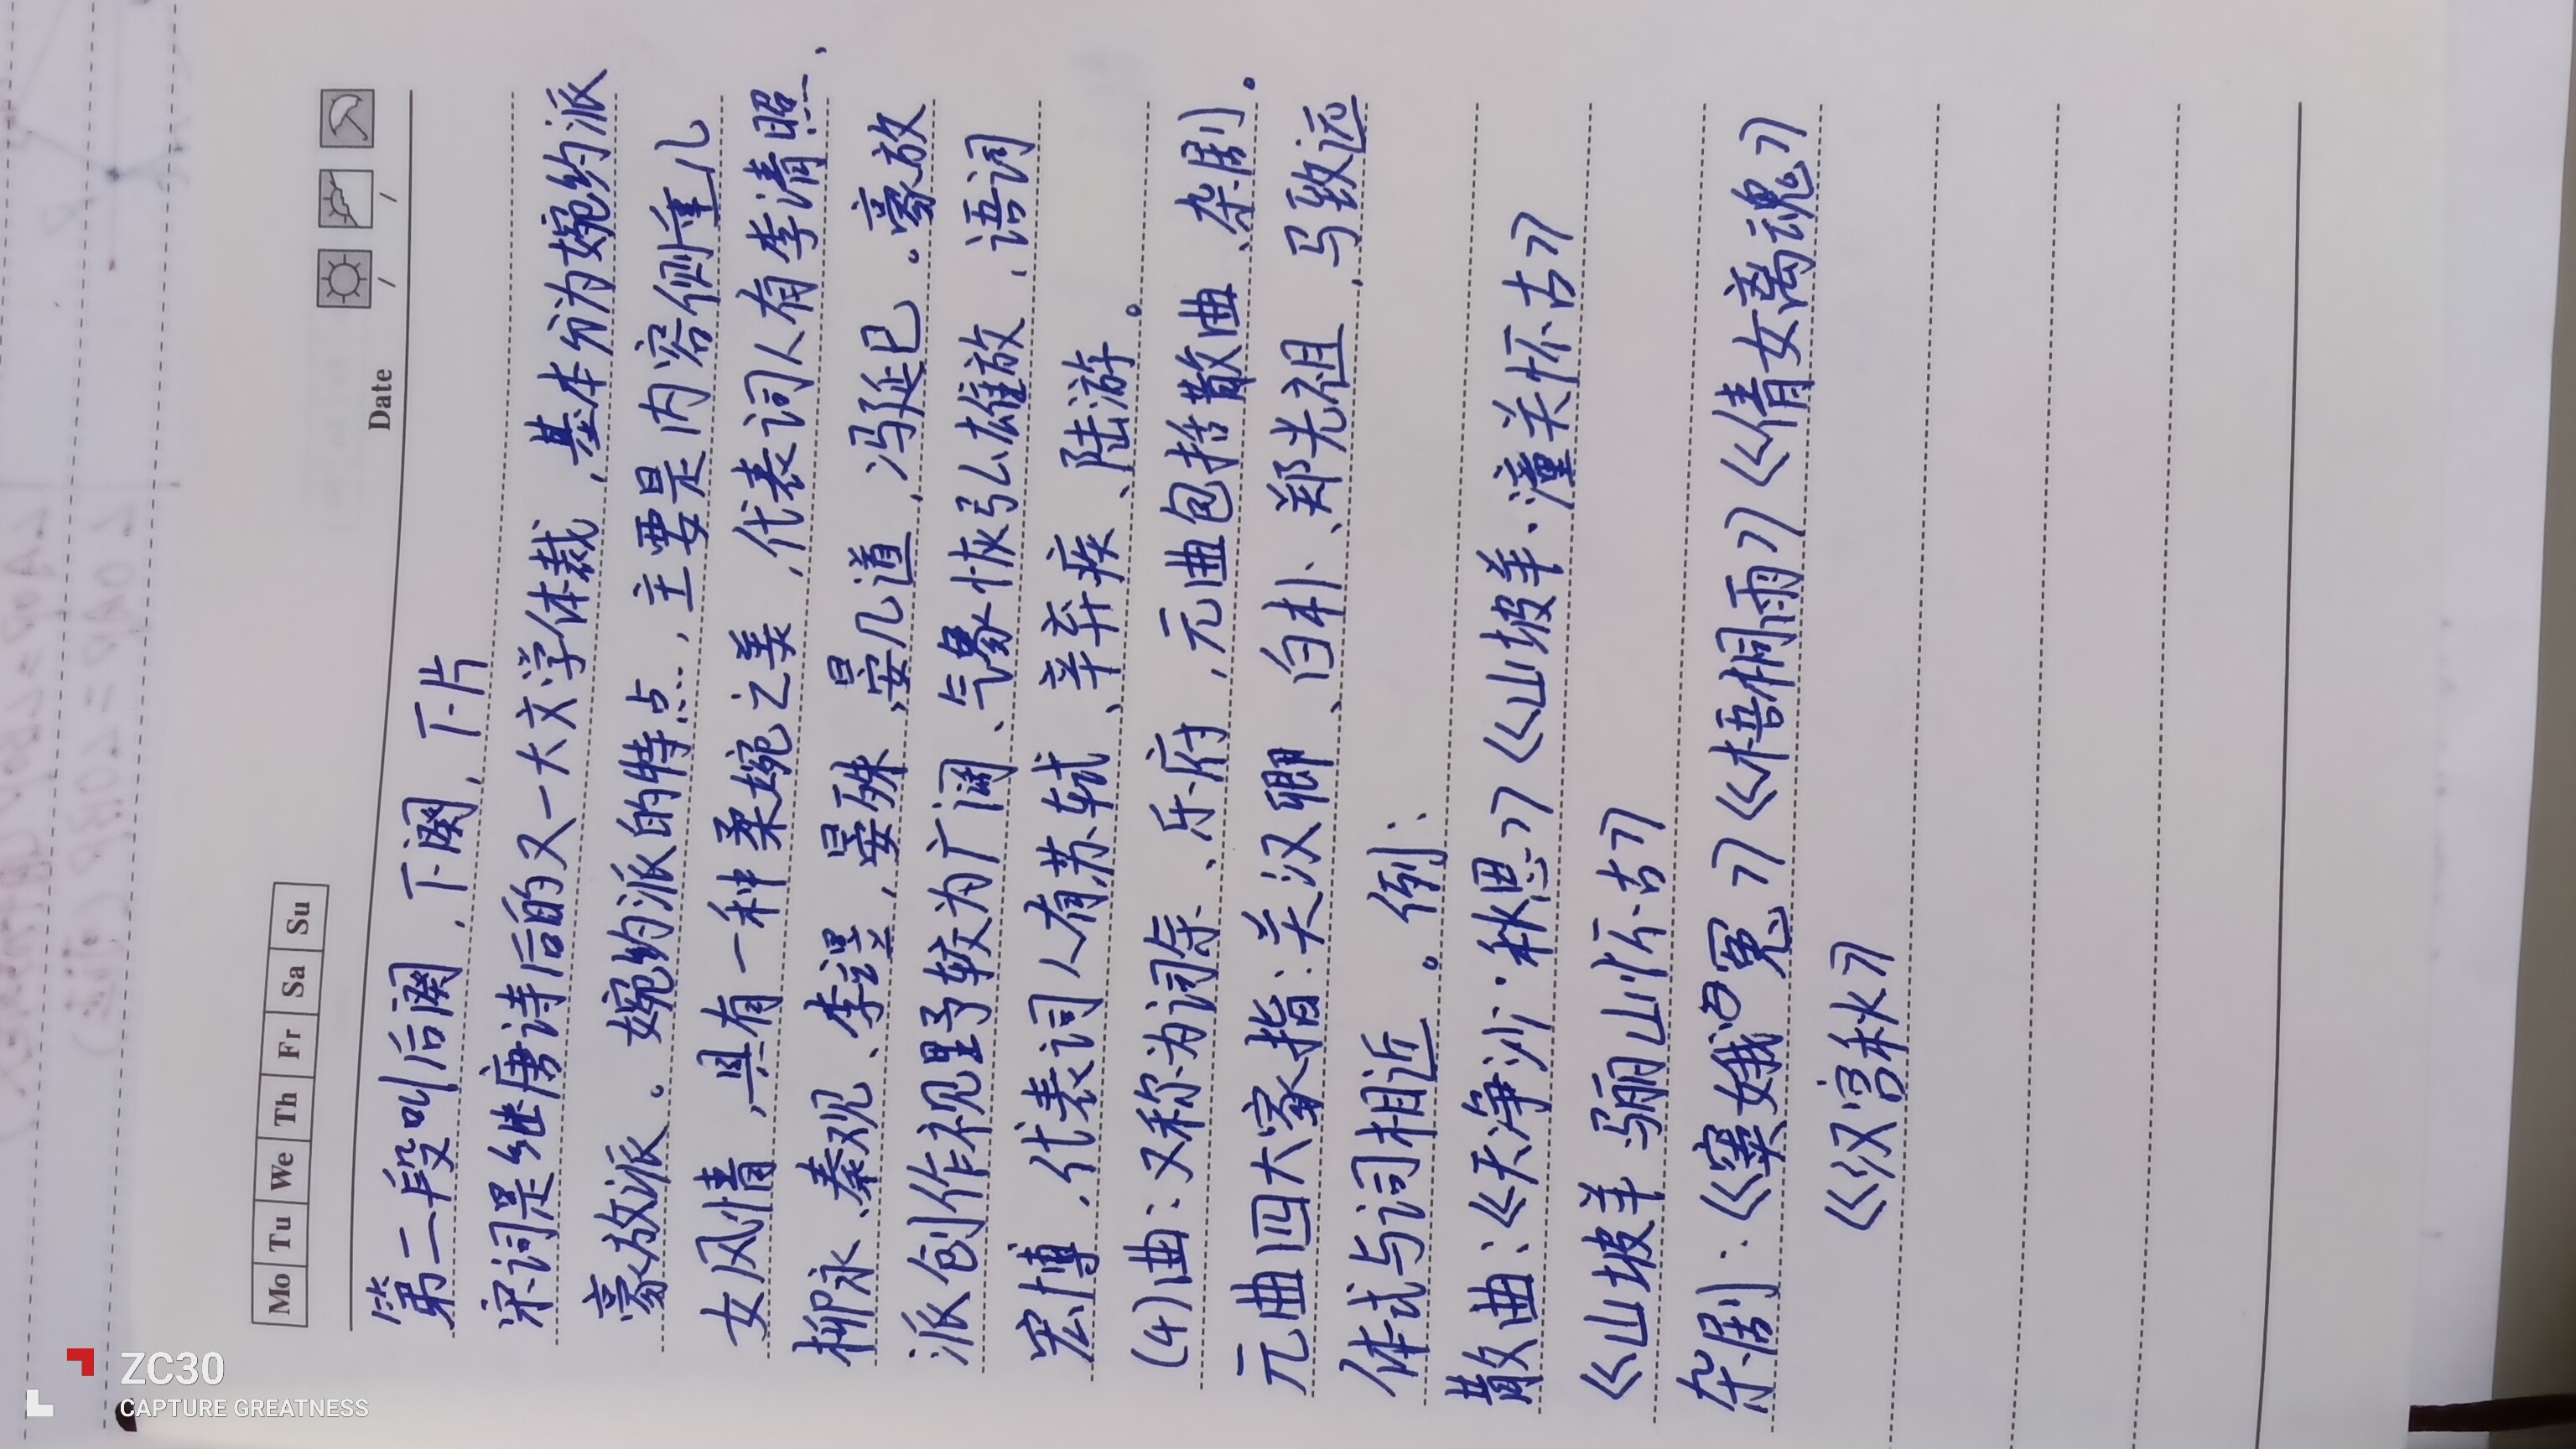 Mo Tu We Th Fr Sa Su
Date / /
第二段叫后阕，下阕，下片
宋词是继唐诗后的又一大文学体裁，基本分为婉约派
豪放派。婉约派的特点，主要是内容侧重儿
女风情，具有一种柔婉之美，代表词人有李清照、
柳永、秦观、李煜，晏殊，晏几道，冯延巳。豪放
派创作视野较为广阔、气象恢弘雄放，语词
宏博，代表词人有苏轼、辛弃疾、陆游。
(4)曲：又称为词余、乐府，元曲包括散曲、杂剧。
元曲四大家指：关汉卿、白朴、郑光祖，马致远
体式与词相近。例：
散曲：《天净沙·秋思》《山坡羊·潼关怀古》
《山坡羊·骊山怀古》
杂剧：《窦娥冤》《梧桐雨》《倩女离魂》
《汉宫秋》
ZC30
CAPTURE GREATNESS